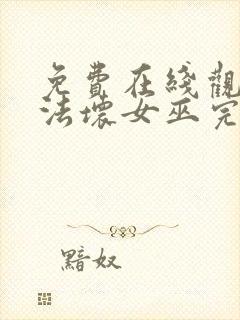 免費在綫觀
法壞女巫完
黯奴